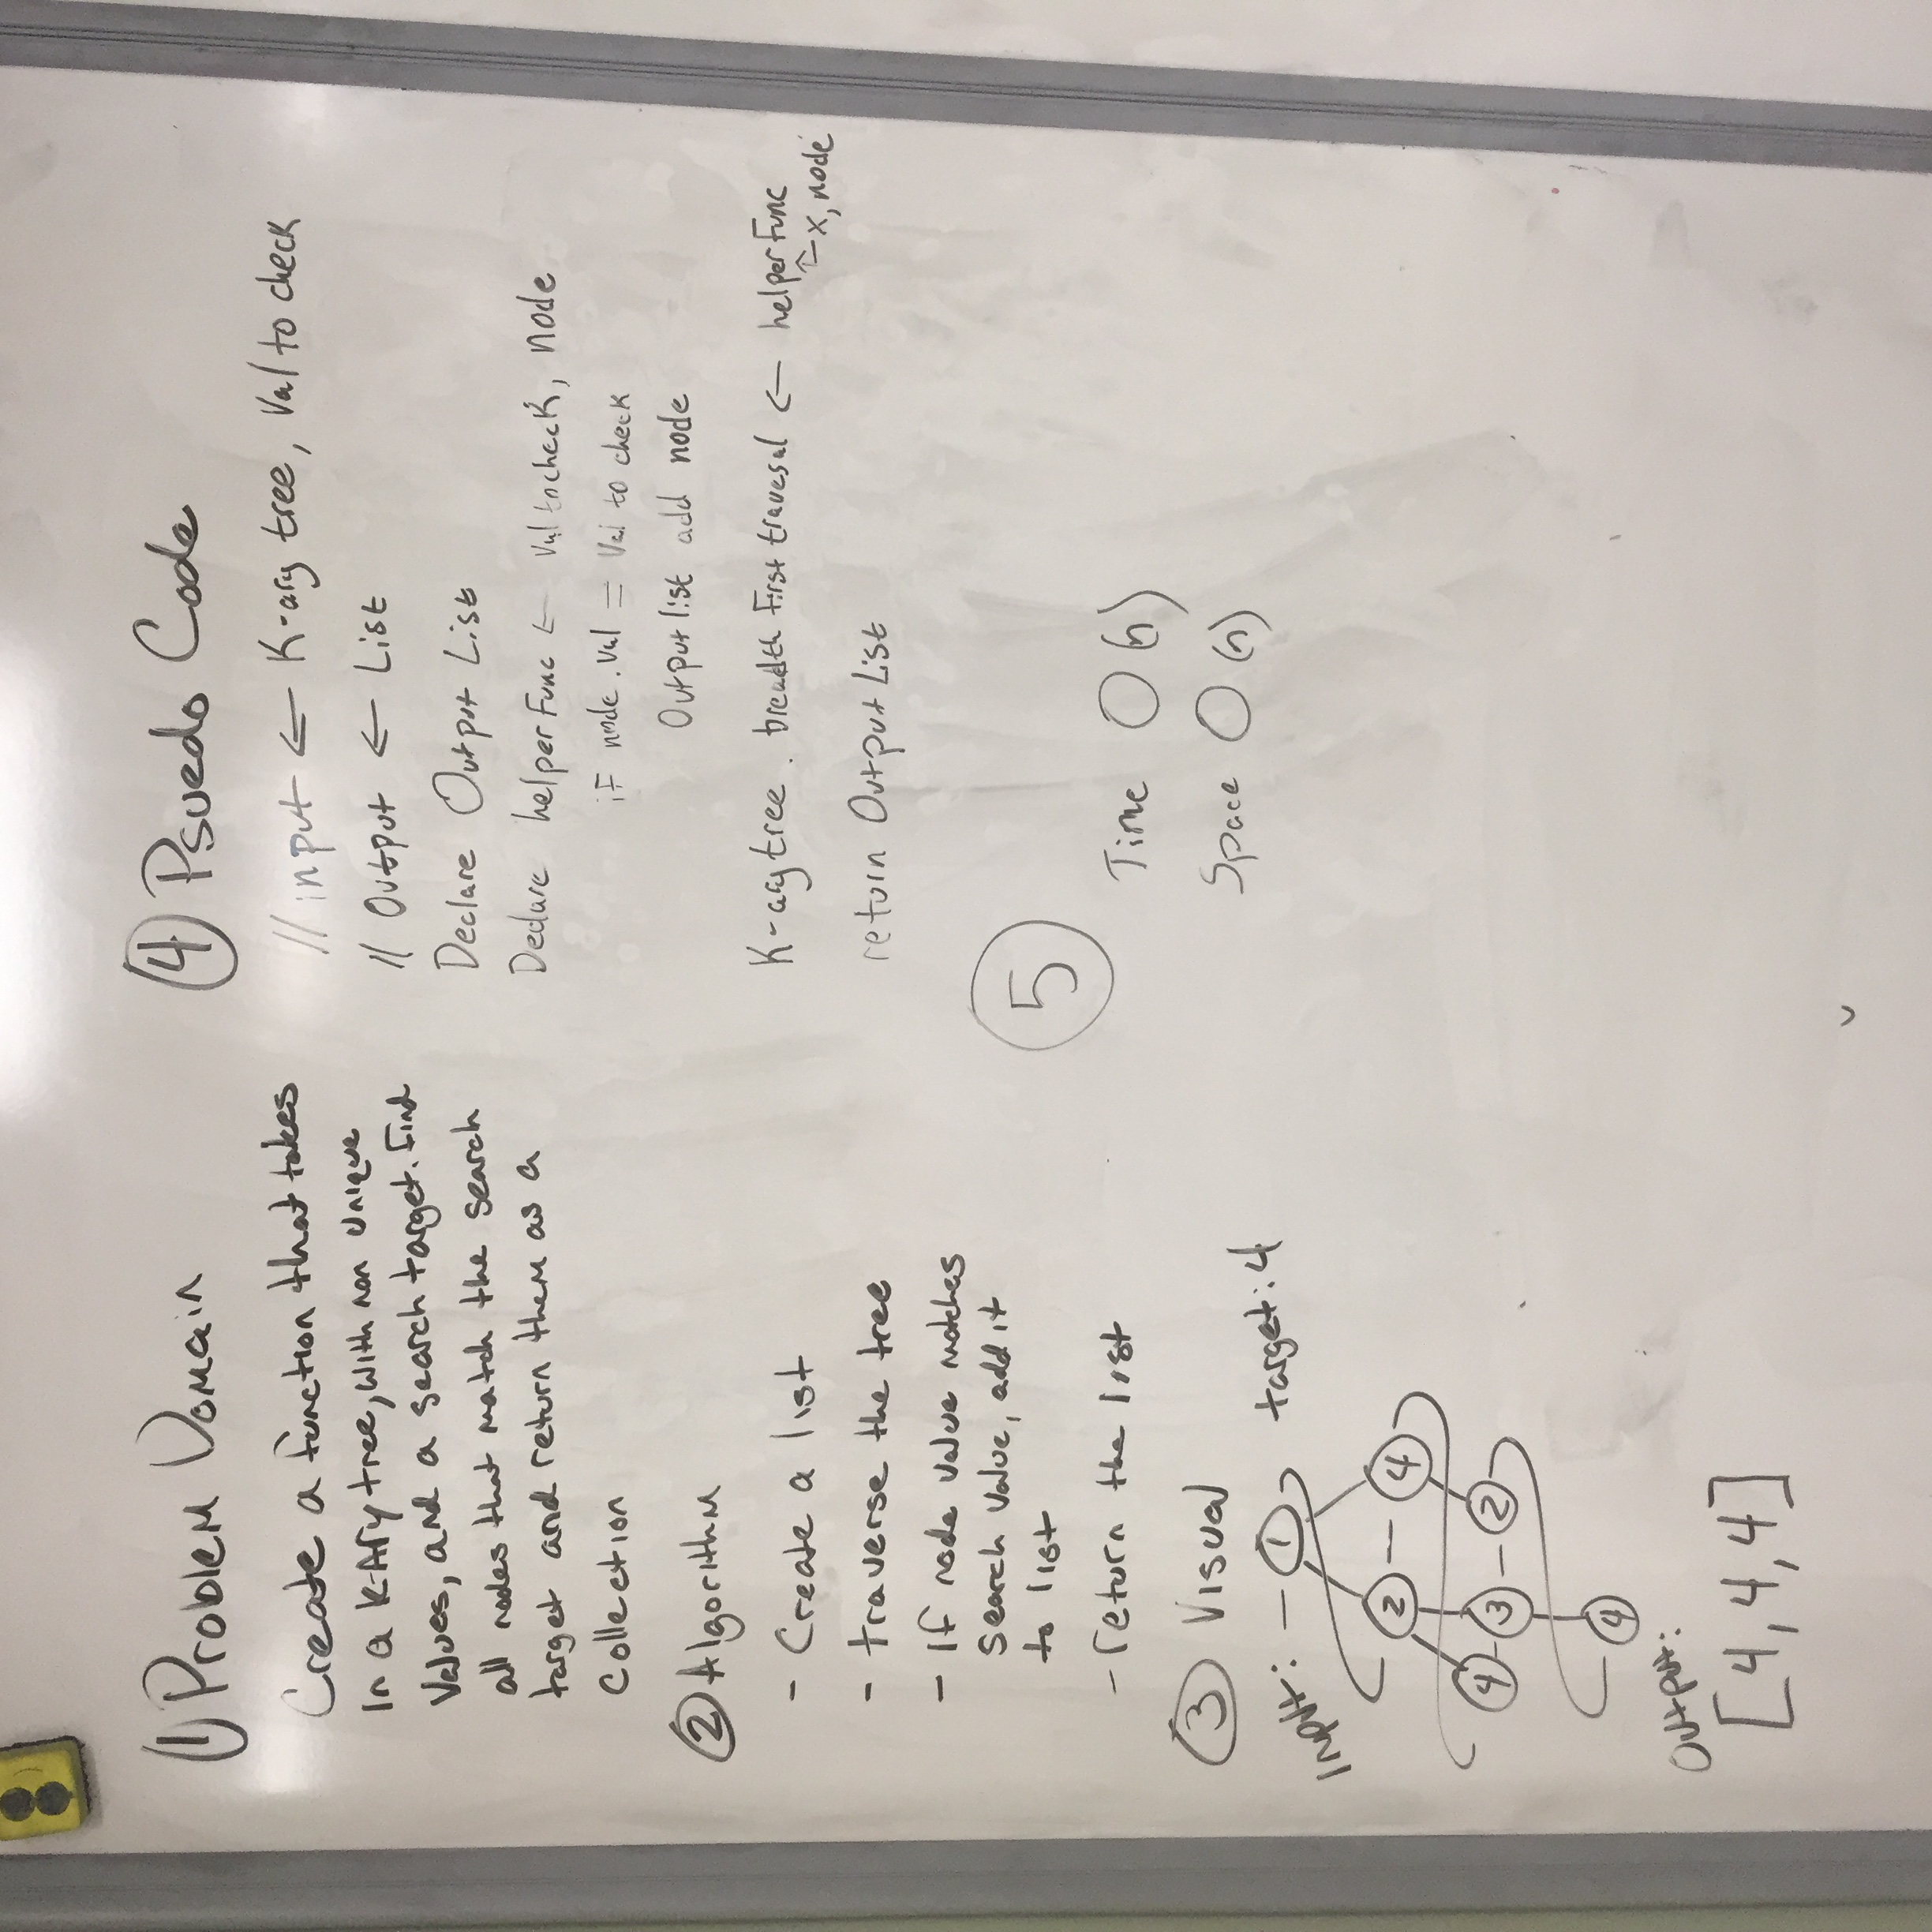 ① Problem Domain
Create a function that takes
In a K-Ary tree, with non unique
Values, and a search target. Find
all nodes that match the search
target and return them as a
Collection
② Algorithm
- Create a list
- traverse the tree
- If node value matches
search value, add it
to list
- return the list
③ Visual
Input: 1 target: 4
2 4
4 3 2
4
Output:
[4, 4, 4]
④ Psuedo Code
// input ← K-ary tree, Val to check
// Output ← List
Declare Output List
Declare helper Func ← Val to check, node
if node.val = Val to check
Output list add node
K-ary tree . breadth First travesal ← helper Func
↑ x, node
return Output List
⑤
Time O(n)
Space O(n)